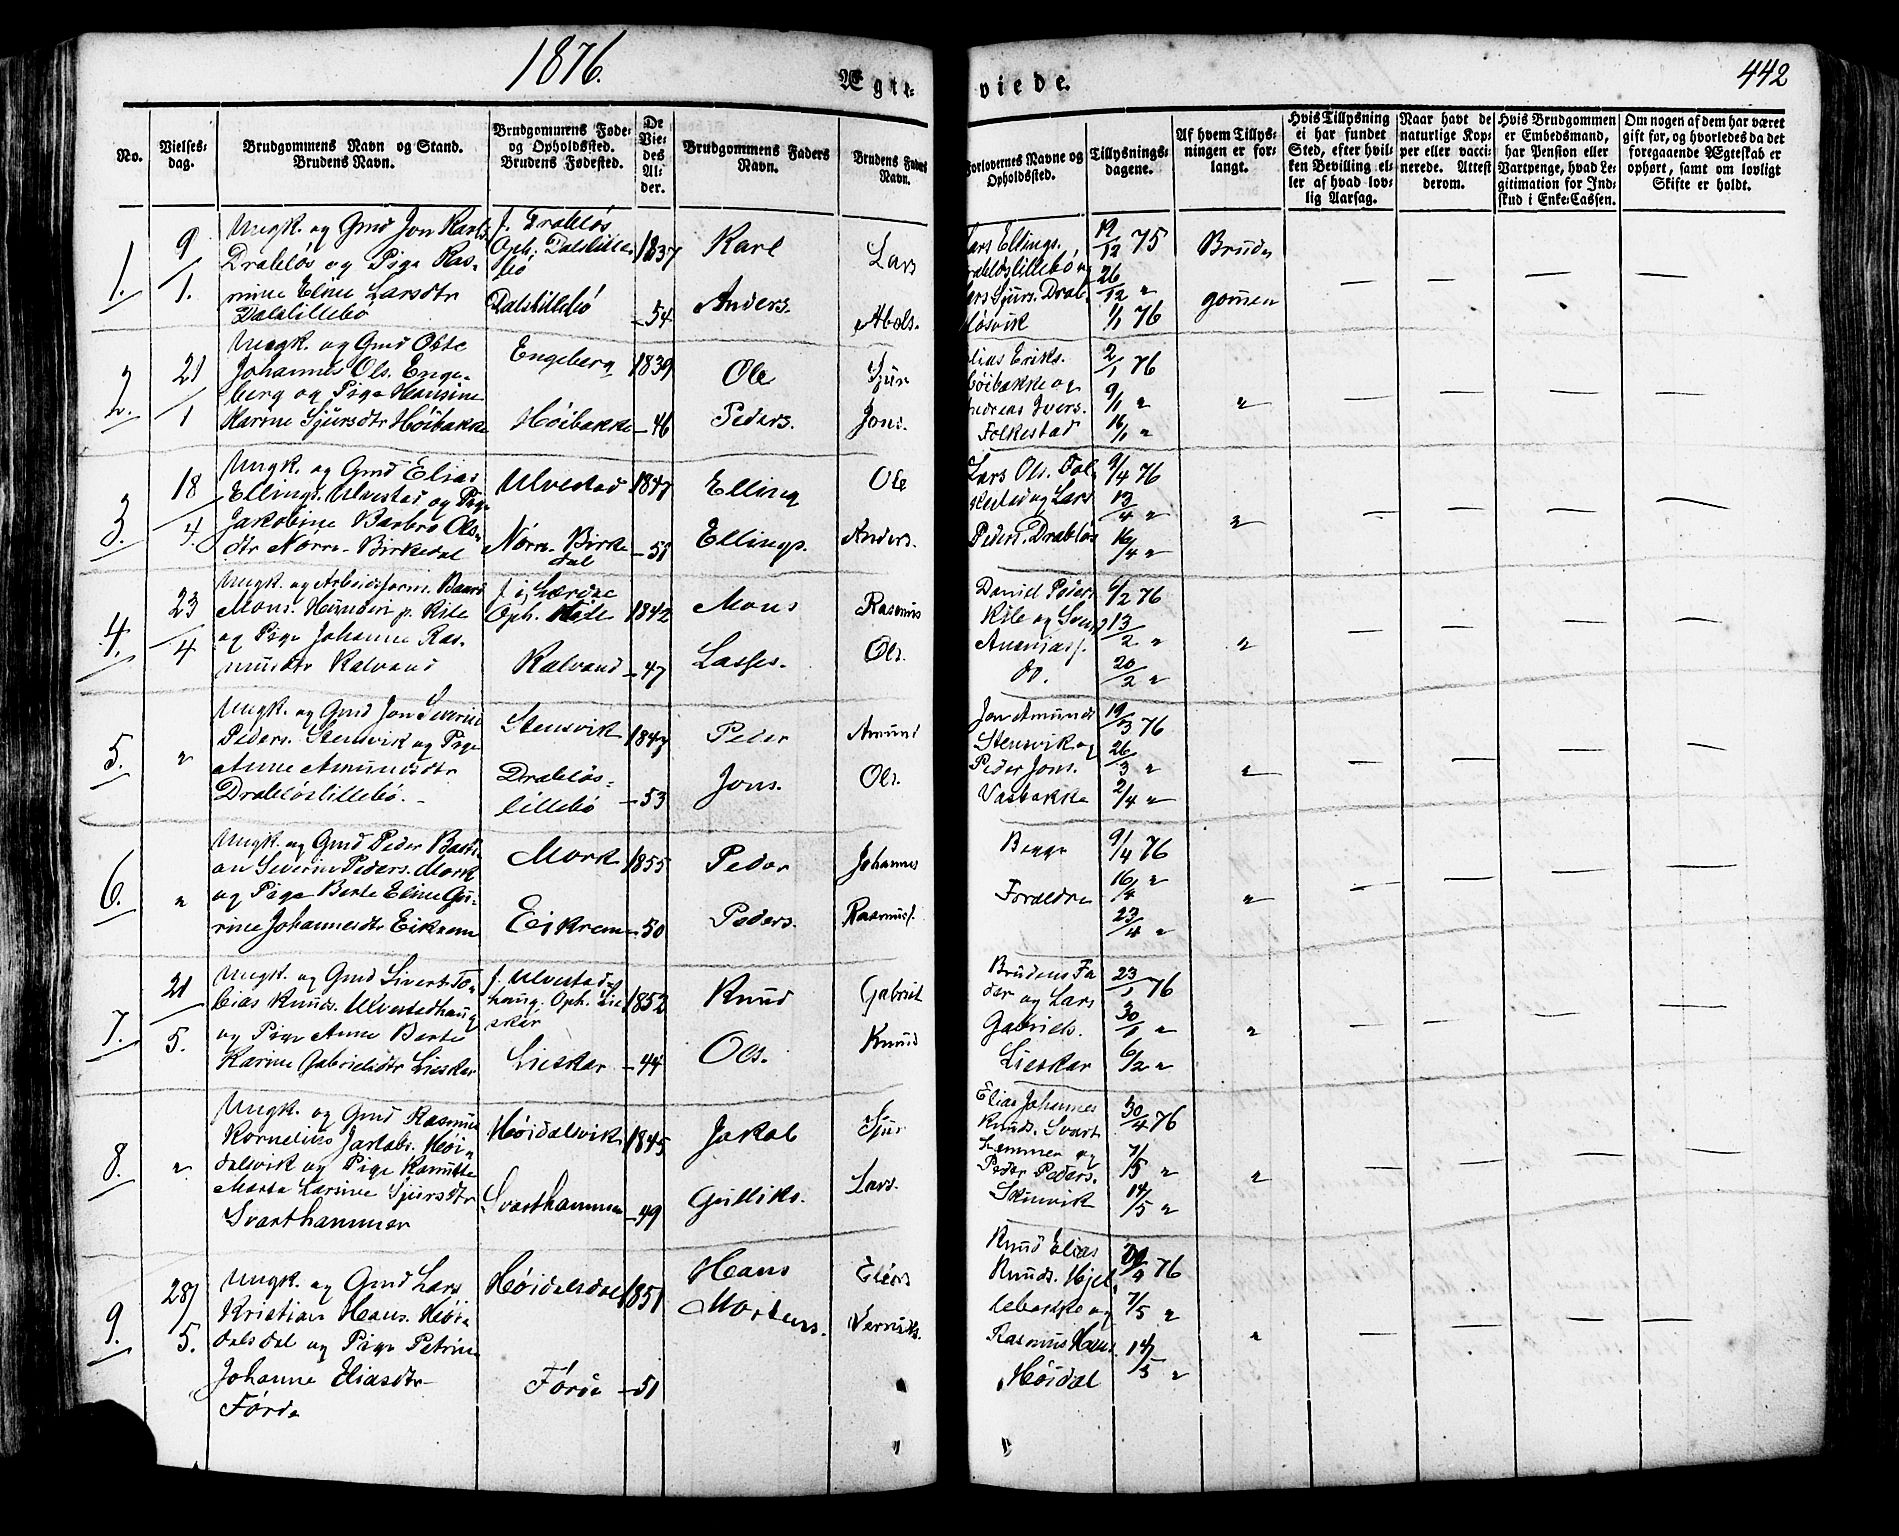 1876.
Ægte-
viede.
442
No.
Vielses-
dag.
Brudgommens Navn og Stand.
Brudens Navn.
Brudgommens Føde-
og Opholdssted.
Brudens Fødested.
De
Vie-
des
Al-
der.
Brudgommens Faders
Navn.
Brudens Faders
Navn.
Forlovernes Navne og
Opholdssted.
Tillysnings-
dagene.
Af hvem Tillys-
ningen er for-
langt.
Hvis Tillysning
ei har fundet
Sted, efter hvil-
ken Bevilling el-
ler af hvad lov-
lig Aarsag.
Naar havt de
naturlige Kop-
per eller vacci-
nerede. Attest
derom.
Hvis Brudgommen
er Embedsmand,
har Pension eller
Vartpenge, hvad Le-
gitimation for Ind-
skud i Enke-Cassen.
Om nogen af dem har været
gift før, og hvorledes da det
foregaaende Ægteskab er
ophørt, samt om lovligt
Skifte er holdt.
1.
9/1.
Ungk. og Gmd Jon Karls.
Drabløs og Pige Ras-
mine Eline Larsdtr
Dalslillebø
f. Drabløs
Oph. Dalslille-
bø
Dalslillebø
1837
- 54
Karl
Anders.
Lars
Abels.
Lars Ellings.
Drabløslillebø og
Lars Sjurs. Drab-
løsvik
19/12 75
26/12 "
1/1 76
Brudg
gomen
— — — — —
2.
21/1
Ungk. og Gmd Oste
Johannes Ols. Enge-
berg og Pige Hansine
Karine Sjursdtr Høibakke
Engeberg
Høibakke
1839
- 46
Ole
Peders.
Sjur
Jons.
Elias Eriks.
Høibakke og
Andreas Ivers.
Folkestad
2/1 76
9/1 "
16/1 "
"
— — — —
3.
18/4.
Ungk. og Gmd Elias
Ellings. Ulvestad og Pige
Jakobine Barbro Ols-
dtr Nørre-Birkedal
Ulvestad
Nørre-Birke
dal
1847
- 51
Elling
Ellings.
Ole
Anders.
Lars Ols. Fol-
kestad og Lars
Peders. Drabløs
9/4 76
13/4 "
16/4 "
"
— — — —
4.
23/4
Ungk. og Arbeidsform. Baard
Mons. Humberi p. Kile
og Pige Johanne Ras-
musdtr Kalvand
f. i Lærdal
Oph. Kile
Kalvand
1842
- 47
Mons
Lasses.
Rasmus
Ols.
Daniel Peders.
Kile og Svend
Ananiass.
do.
6/2 76
13/2 "
20/2 "
"
— — — —
5.
"
Ungk. og Gmd Jon Severin
Peders. Stensvik og Pige
Anne Amundsdtr
Drabløslillebø. -
Stensvik
Drabløs-
lillebø
1847
- 53
Peder
Jons.
Amund
Ols.
Jon Amunds.
Stensvik og
Peder Jons.
Vasbakke
19/3 76
26/3 "
2/4 "
"
— — — —
6.
"
Ungk. og Gmd Peder Basti-
an Severin Peders. Mork
og Pige Berte Eline Gu-
rine Johannesdtr Eikrem
Mork
Eikrem
1855
- 50
Peder
Peders.
Johannes
Rasmuss.
Begge
Forældre
9/4 76
16/4 "
23/4 "
"
— — — —
7.
21/5.
Ungk. og Gmd Sivert To-
bias Knuds. Ulvestedhaug
og Pige Anne Berte
Karine Gabrielsdtr Lieskar
f. Ulvestad-
haug. Oph. Lie-
skar
Lieskar
1852
- 44
Knud
Ols.
Gabriel
Knuds
Brudens Fa
der og Lars
Gabriels.
Lieskar
23/1 76
30/1 "
6/2 "
"
— — — —
8.
"
Ungk. og Gmd Rasmus
Kornelius Jakobs. Høi-
dalsvik og Pige Kanutte
Marta Larsine Sjursdtr
Svarthammer
Høidalsvik
Svarthammer
1845
- 49
Jakob
Gulliks.
Sjur
Lars.
Elias Johannes
Knuds. Svart
hammer og
Peder Peders.
Skinvik
30/4 76
7/5 "
14/5 "
"
— — — —
9.
28/5.
Ungk. og Gmd Lars
Kristian Hans. Høi-
dalsdal og Pige Petrine
Johanne Eliasdtr
Førde
Høidalsdal
Førde
1851
- 51
Hans
Mortens.
Elias
Knud Elias
Knuds. Hjel-
lebakke og
Rasmus Hans.
Høidal
30/4 76
7/5 "
14/5 "
"
— — — —